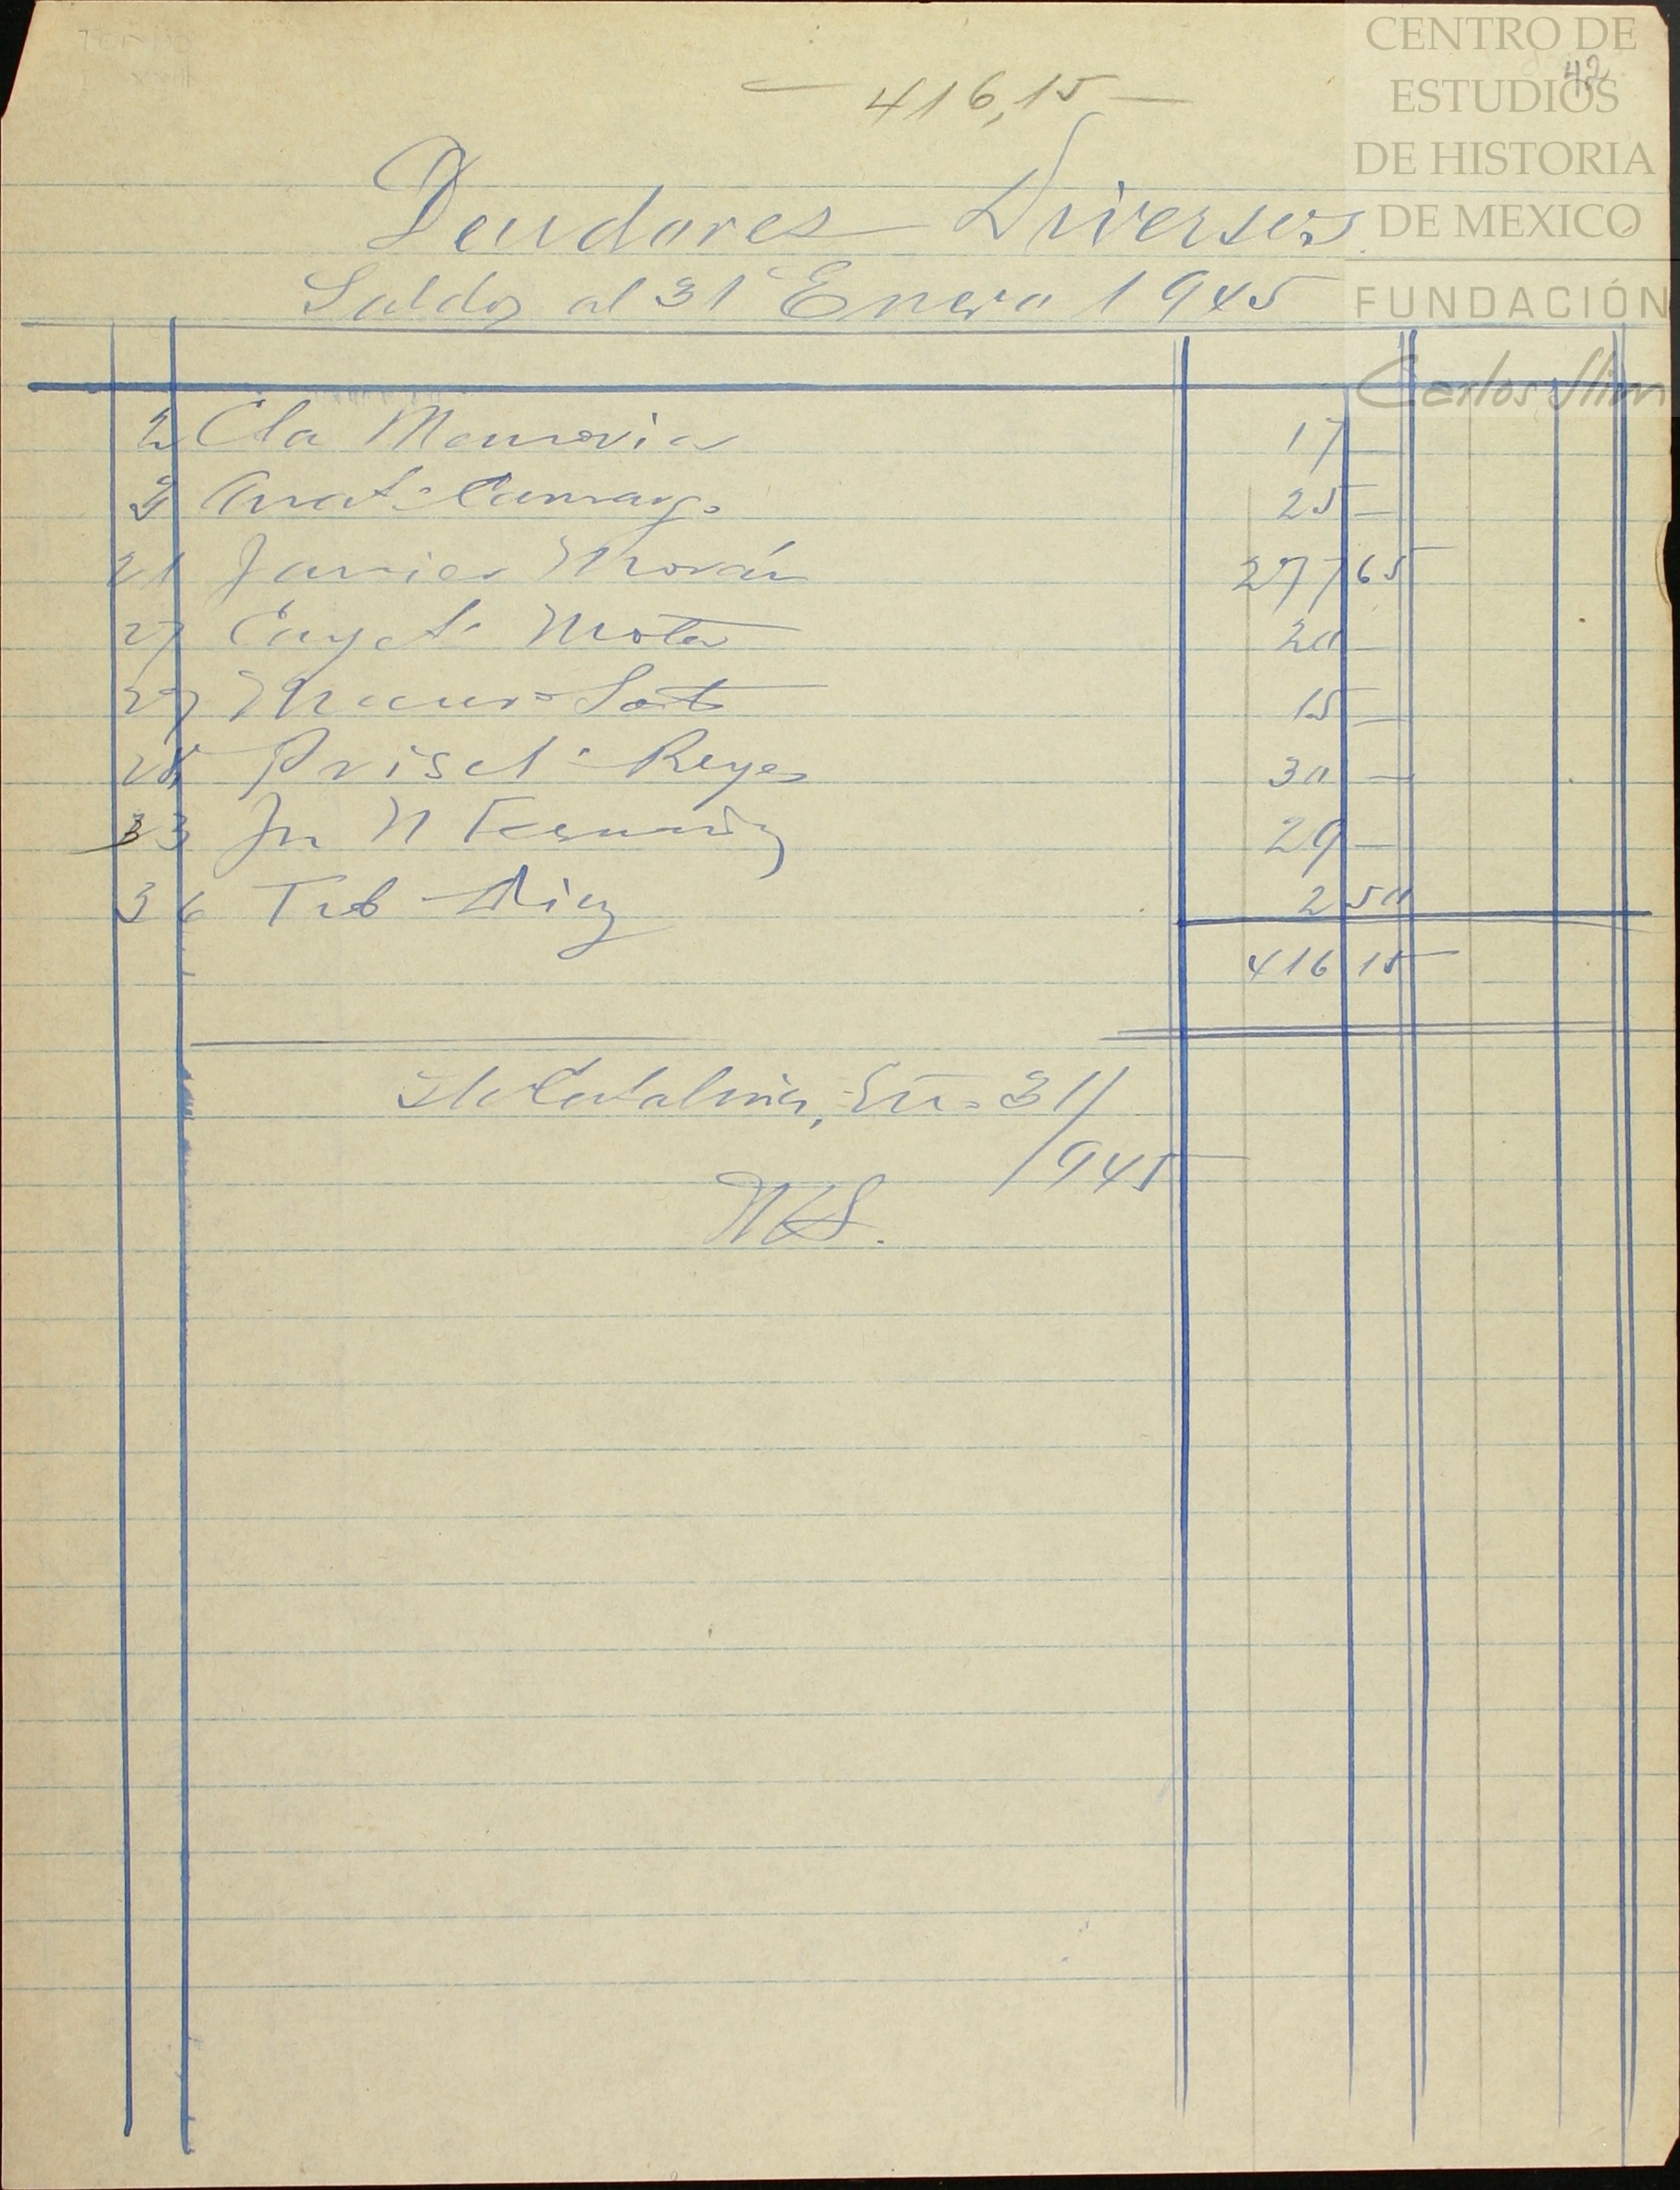 CENTRO DE
ESTUDIOS
DE HISTORIA
DE MEXICO
FUNDACIÓN
Carlos Slim
42
— 416,15 —
Deudores Diversos
Saldos al 31 Enero 1945
2 Cta 17 —
3 Anat° Camargo 25 —
21 Javier Morán 277 65
27 Cayet° Mota 20 —
27 Soto 15 —
28 Prisc Reyes 30 —
33 Jn N 29 —
36 Trb Diaz 2 50
416 15
Sta Catalina, En° 31/
1945